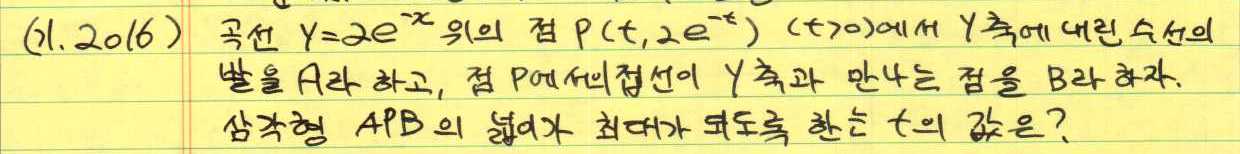 (기.2016) 곡선 y=2e^{-x} 위의 점 P(t, 2e^{-t}) (t>0)에서 y축에 내린 수선의
발을 A라 하고, 점 P에서의 접선이 y축과 만나는 점을 B라 하자.
삼각형 APB의 넓이가 최대가 되도록 한는 t의 값은?